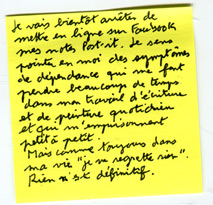 Je vais bientôt arrêter de
mettre en ligne sur Facebook
mes notes Post-it. Je sens
poindre en moi des symptômes
de dépendance qui me font
perdre beaucoup de temps
dans mon travail d'écriture
et de peinture quotidien
et qui m'emprisonnent
petit à petit.
Mais comme toujours dans
ma vie "je ne regrette rien".
Rien n'est définitif.